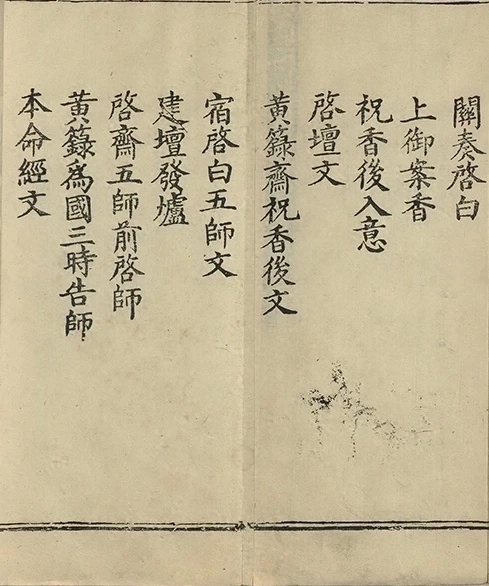 關奏啓白
上御案香
祝香後入意
啓壇文
黃籙齋祝香後文
宿啓白五師文
建壇發爐
啓齋五師前啓師
黃籙爲國三時告師
本命經文